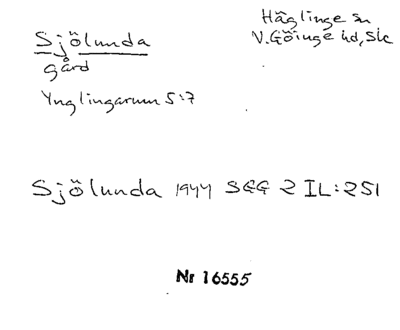 Sjölunda
gård
Häglinge sn
V. Göinge hd, Sk
Ynglingarum 5:7
Sjölunda 1944 SGG 2 IL:251
Nr 16555